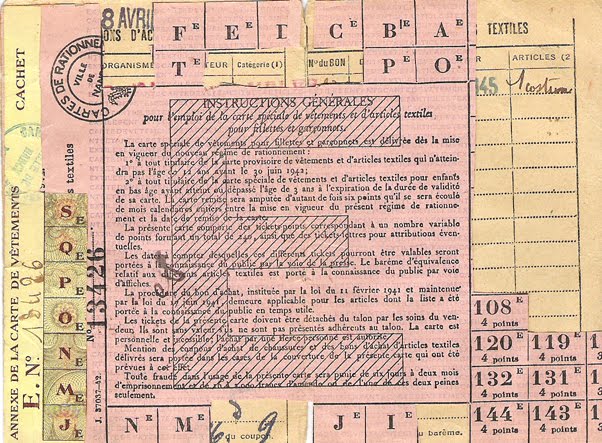 8 AVRIL
F E E E D E C E B E A E
TEXTILES
CACHET
CARTES DE RATIONNE
VILLE DE NAN
ONS D'AC
ORGANISME
T E
TEUR
Catégorie (1)
N° du BON
P E O E
R
ARTICLES (2
145
1 costume
INSTRUCTIONS GÉNÉRALES
pour l'emploi de la carte spéciale de vêtements et d'articles textiles
pour fillettes et garçonnets.
La carte spéciale de vêtements pour fillettes et garçonnets est délivrée dès la mise
en vigueur du nouveau régime de rationnement :
1° à tout titulaire de la carte provisoire de vêtements et d'articles textiles qui n'attein-
dra pas l'âge de 12 ans avant le 30 juin 1942;
2° à tout titulaire de la carte spéciale de vêtements et d'articles textiles pour enfants
en bas âge ayant atteint ou dépassé l'âge de 3 ans à l'expiration de la durée de validité
de sa carte. La carte remise sera amputée d'autant de fois six points qu'il se sera écoulé
de mois calendaires entiers entre la mise en vigueur du présent régime de rationne-
ment et la date de remise de la carte.
La présente carte comporte des tickets-points correspondant à un nombre variable
de points formant un total de 240, ainsi que des tickets-lettres pour attributions éven-
tuelles.
Les dates à compter desquelles ces différents tickets pourront être valables seront
portées à la connaissance du public par la voie de la presse. Le barème d'équivalence
relatif aux divers articles textiles est porté à la connaissance du public par voie
d'affiches.
La procédure du bon d'achat, instituée par la loi du 11 février 1941 et maintenue
par la loi du 17 juin 1941, demeure applicable pour les articles dont la liste a été
portée à la connaissance du public en temps utile.
Les tickets de la présente carte doivent être détachés du talon par les soins du ven-
deur, ils sont sans valeur s'ils ne sont pas présentés adhérents au talon. La carte est
personnelle et rescellant l'achat par une tierce personne est autorisé.
Mention des coupons d'achat de chaussures et des bons d'achat d'articles textiles
délivrés sera portée dans les cases de la couverture de la présente carte qui ont été
prévues à cet effet.
Toute fraude dans l'usage de la présente carte sera punie de six jours à deux mois
d'emprisonnement et de 16 à 2.000 francs d'amende ou de l'une de ces deux peines
seulement.
ANNEXE DE LA CARTE DE VÊTEMENTS
E. N°
textiles
S E
O E
P E
O E
N E
M E
J E
N° 13426
J. 37037-42.
108 E
4 points
120 E
4 points
119 E
4 points
132 E
4 points
131 E
4 points
144 E
4 points
143 E
4 points
N E M E
J E I E
du coupon.
du barème.